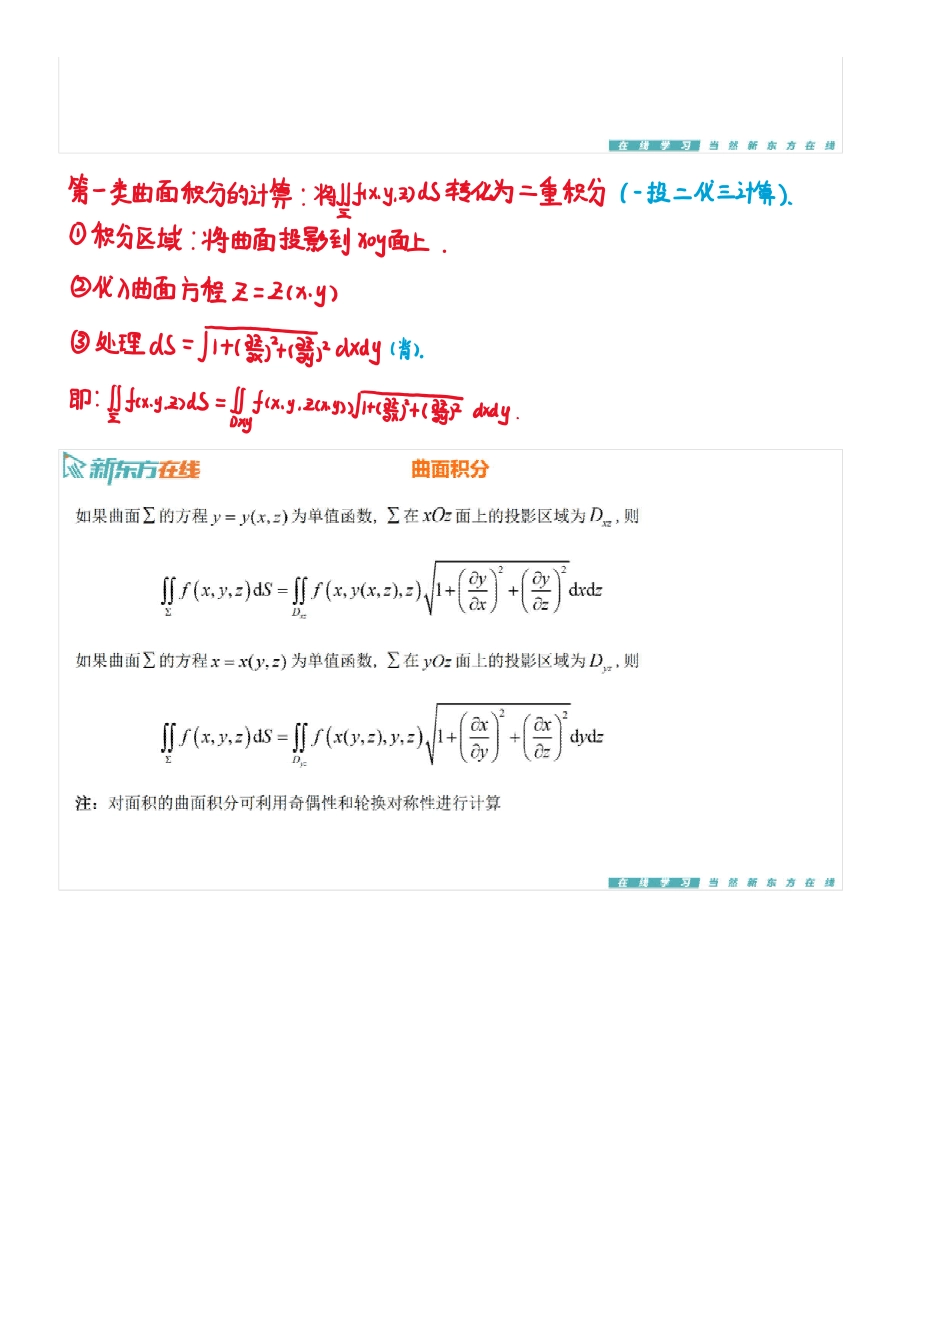 在 线 学 习 当 然 新 东 方 在 线
第一类曲面积分的计算：将∬_Σ f(x,y,z)dS转化为二重积分（一投二代三计算）.
①积分区域：将曲面投影到xoy面上.
②代入曲面方程 z=z(x,y)
③处理 dS=√(1+(∂z/∂x)²+(∂z/∂y)²) dxdy（背）.
即：∬_Σ f(x,y,z)dS=∬_Dxy f(x,y,z(x,y))√(1+(∂z/∂x)²+(∂z/∂y)²) dxdy.
新东方在线 曲面积分
如果曲面∑的方程 y = y(x,z) 为单值函数, ∑在 xOz 面上的投影区域为 D_xz ,则
∬_Σ f(x,y,z)dS = ∬_D_xz f(x,y(x,z),z)√(1+(∂y/∂x)²+(∂y/∂z)²)dxdz
如果曲面∑的方程 x = x(y,z) 为单值函数, ∑在 yOz 面上的投影区域为 D_yz ,则
∬_Σ f(x,y,z)dS = ∬_D_yz f(x(y,z),y,z)√(1+(∂x/∂y)²+(∂x/∂z)²)dydz
注：对面积的曲面积分可利用奇偶性和轮换对称性进行计算
在 线 学 习 当 然 新 东 方 在 线